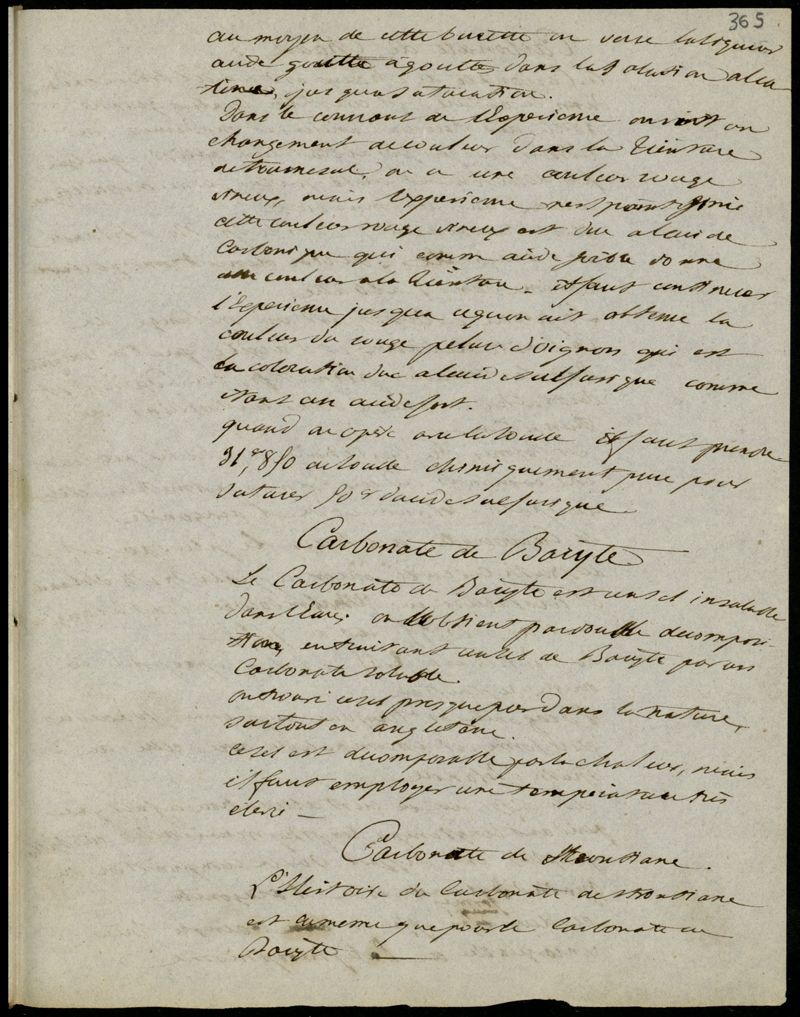 365
au moyen de cette burette on verse la liqueur
acide goutte a goutte dans la solution alca
line, jusqu'a saturation.
Dans le courant de l'Experience on voit un
changement de couleur dans la Teinture
de tournesol, on a une couleur rouge
vineux, mais l'experience n'est point finie
cette couleur rouge vineux est due a l'acide
Carbonique qui comme acide faible donne
une couleur a la Teinture. il faut continuer
l'Experience jusqu'a ce qu'on ait obtenu la
couleur du rouge pelure d'oignons qui est
la coloration due a l'acide sulfurique comme
étant un acide fort.
quand on opère sur la soude il faut prendre
31,gr 850 de soude chimiquement pure pour
saturer 50gr d'acide sulfurique.
Carbonate de Baryte
Le Carbonate de Baryte est un sel insoluble
dans l'eau; on l'obtient par double decomposi-
tion, en traitant un sel de Baryte par un
Carbonate soluble.
on trouve ce sel presque pur dans la nature,
surtout en angleterre.
ce sel est decomposable par la chaleur, mais
il faut employer une température très
elevé —
Carbonate de Strontiane.
L'Histoire du Carbonate de strontiane
est la meme que pour le Carbonate de
Baryte